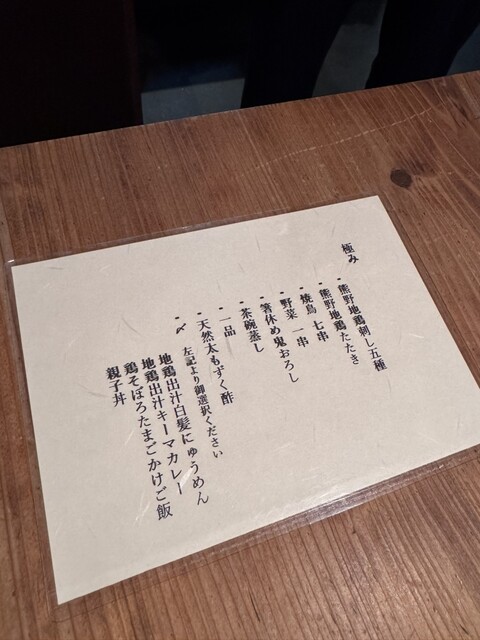 極み
・熊野地鶏刺し五種
・熊野地鶏たたき
・焼鳥 七串
・野菜 一串
・箸休め鬼おろし
・茶碗蒸し
・一品
・天然太もずく酢
・〆 左記より御選択ください
地鶏出汁白髪にゅうめん
地鶏出汁キーマカレー
鶏そぼろたまごかけご飯
親子丼